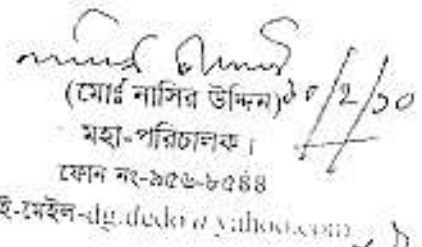 (মোঃ নাসির উদ্দিন)
মহা-পরিচালক।
ফোন নং-৯৫৬-৮৫৪৪
ই-মেইল-dg.dedo@yahoo.com